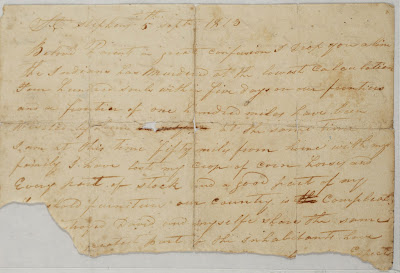 Ft Stephens 5 Sept. 1813
Honor Parent in great confusion I drop you a line
the Indians has murdered at the lowest calculation
four hundred souls within five days on our frontiers
and a frontier of one hundred miles have been
at the same time
I am at this time fifty miles from home with my
family I have lost my crop of corn horses and
Every part of stock and a good part of my
household furniture our country is compleat
and myselfe share the same
greatest part of the inhabitants have